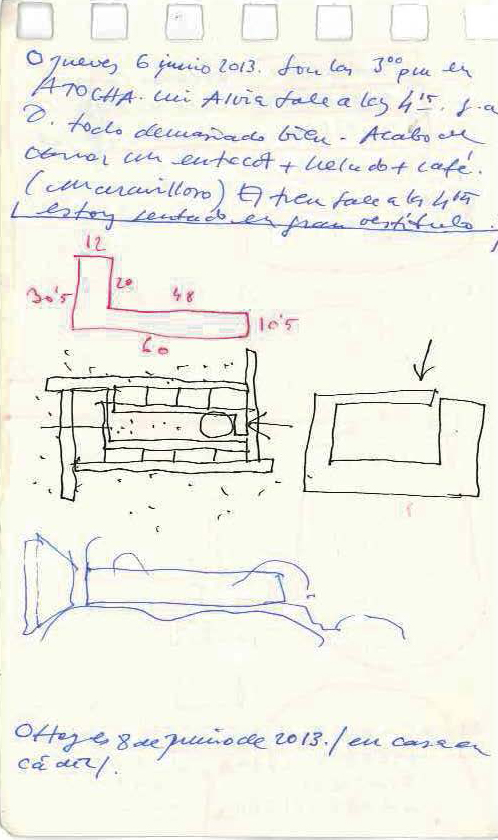 O jueves 6 junio 2013. Son las 3'00 pm en
ATOCHA. mi Alvia sale a las 4'15.
D. todo demasiado bien. Acabo de
comer un entecot + helado + café.
(maravilloso) El tren sale a las 4'15
estoy sentado en gran vestíbulo.
12
30'5
20
48
10'5
60
O Hoy es 8 de junio de 2013. / en casa en
cádiz /.